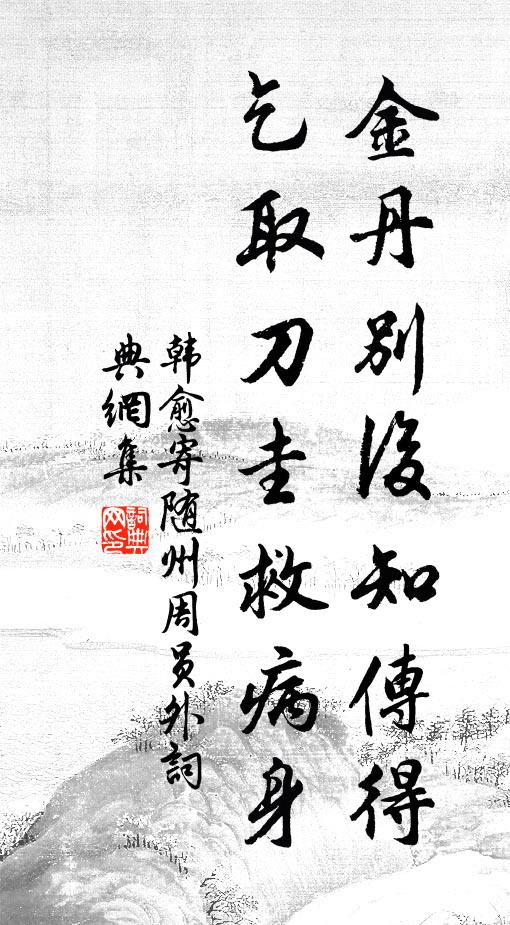 金丹别後知傳得
乞取刀圭救病身
韩愈寄随州周员外詞
典網集
詞典网印